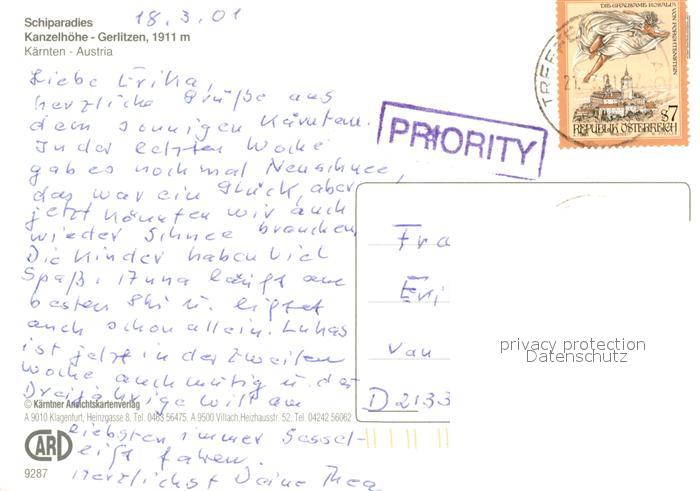 18.3.01
Schiparadies
Kanzelhöhe - Gerlitzen, 1911 m
Kärnten - Austria
Liebe Erika,
herzliche Grüße aus
dem sonnigen Kärnten.
In der letzten Woche
gab es noch mal Neuschnee,
das war ein Glück, aber
jetzt könnten wir auch
wieder Schnee brauchen.
Die Kinder haben viel
Spaß. Anna läuft am
besten Ski u. liftet
auch schon allein. Lukas
ist jetzt in der zweiten
Woche auch mutig u. das
Dreijährige will am
© Kärntner Ansichtskartenverlag
A 9010 Klagenfurt, Heinzgasse 8, Tel. 0463 56475, A 9500 Villach, Heizhausstr. 52, Tel. 04242 56062
liebsten immer Sessel-
lift fahren.
Herzlichst Deine Thea
CARD
9287
PRIORITY
DIE GRAUSAME ROSALIA
VON FORCHTENSTEIN
S7
REPUBLIK ÖSTERREICH
TREFFEN
21.
Fra
Eri
van
D 2133
privacy protection
Datenschutz